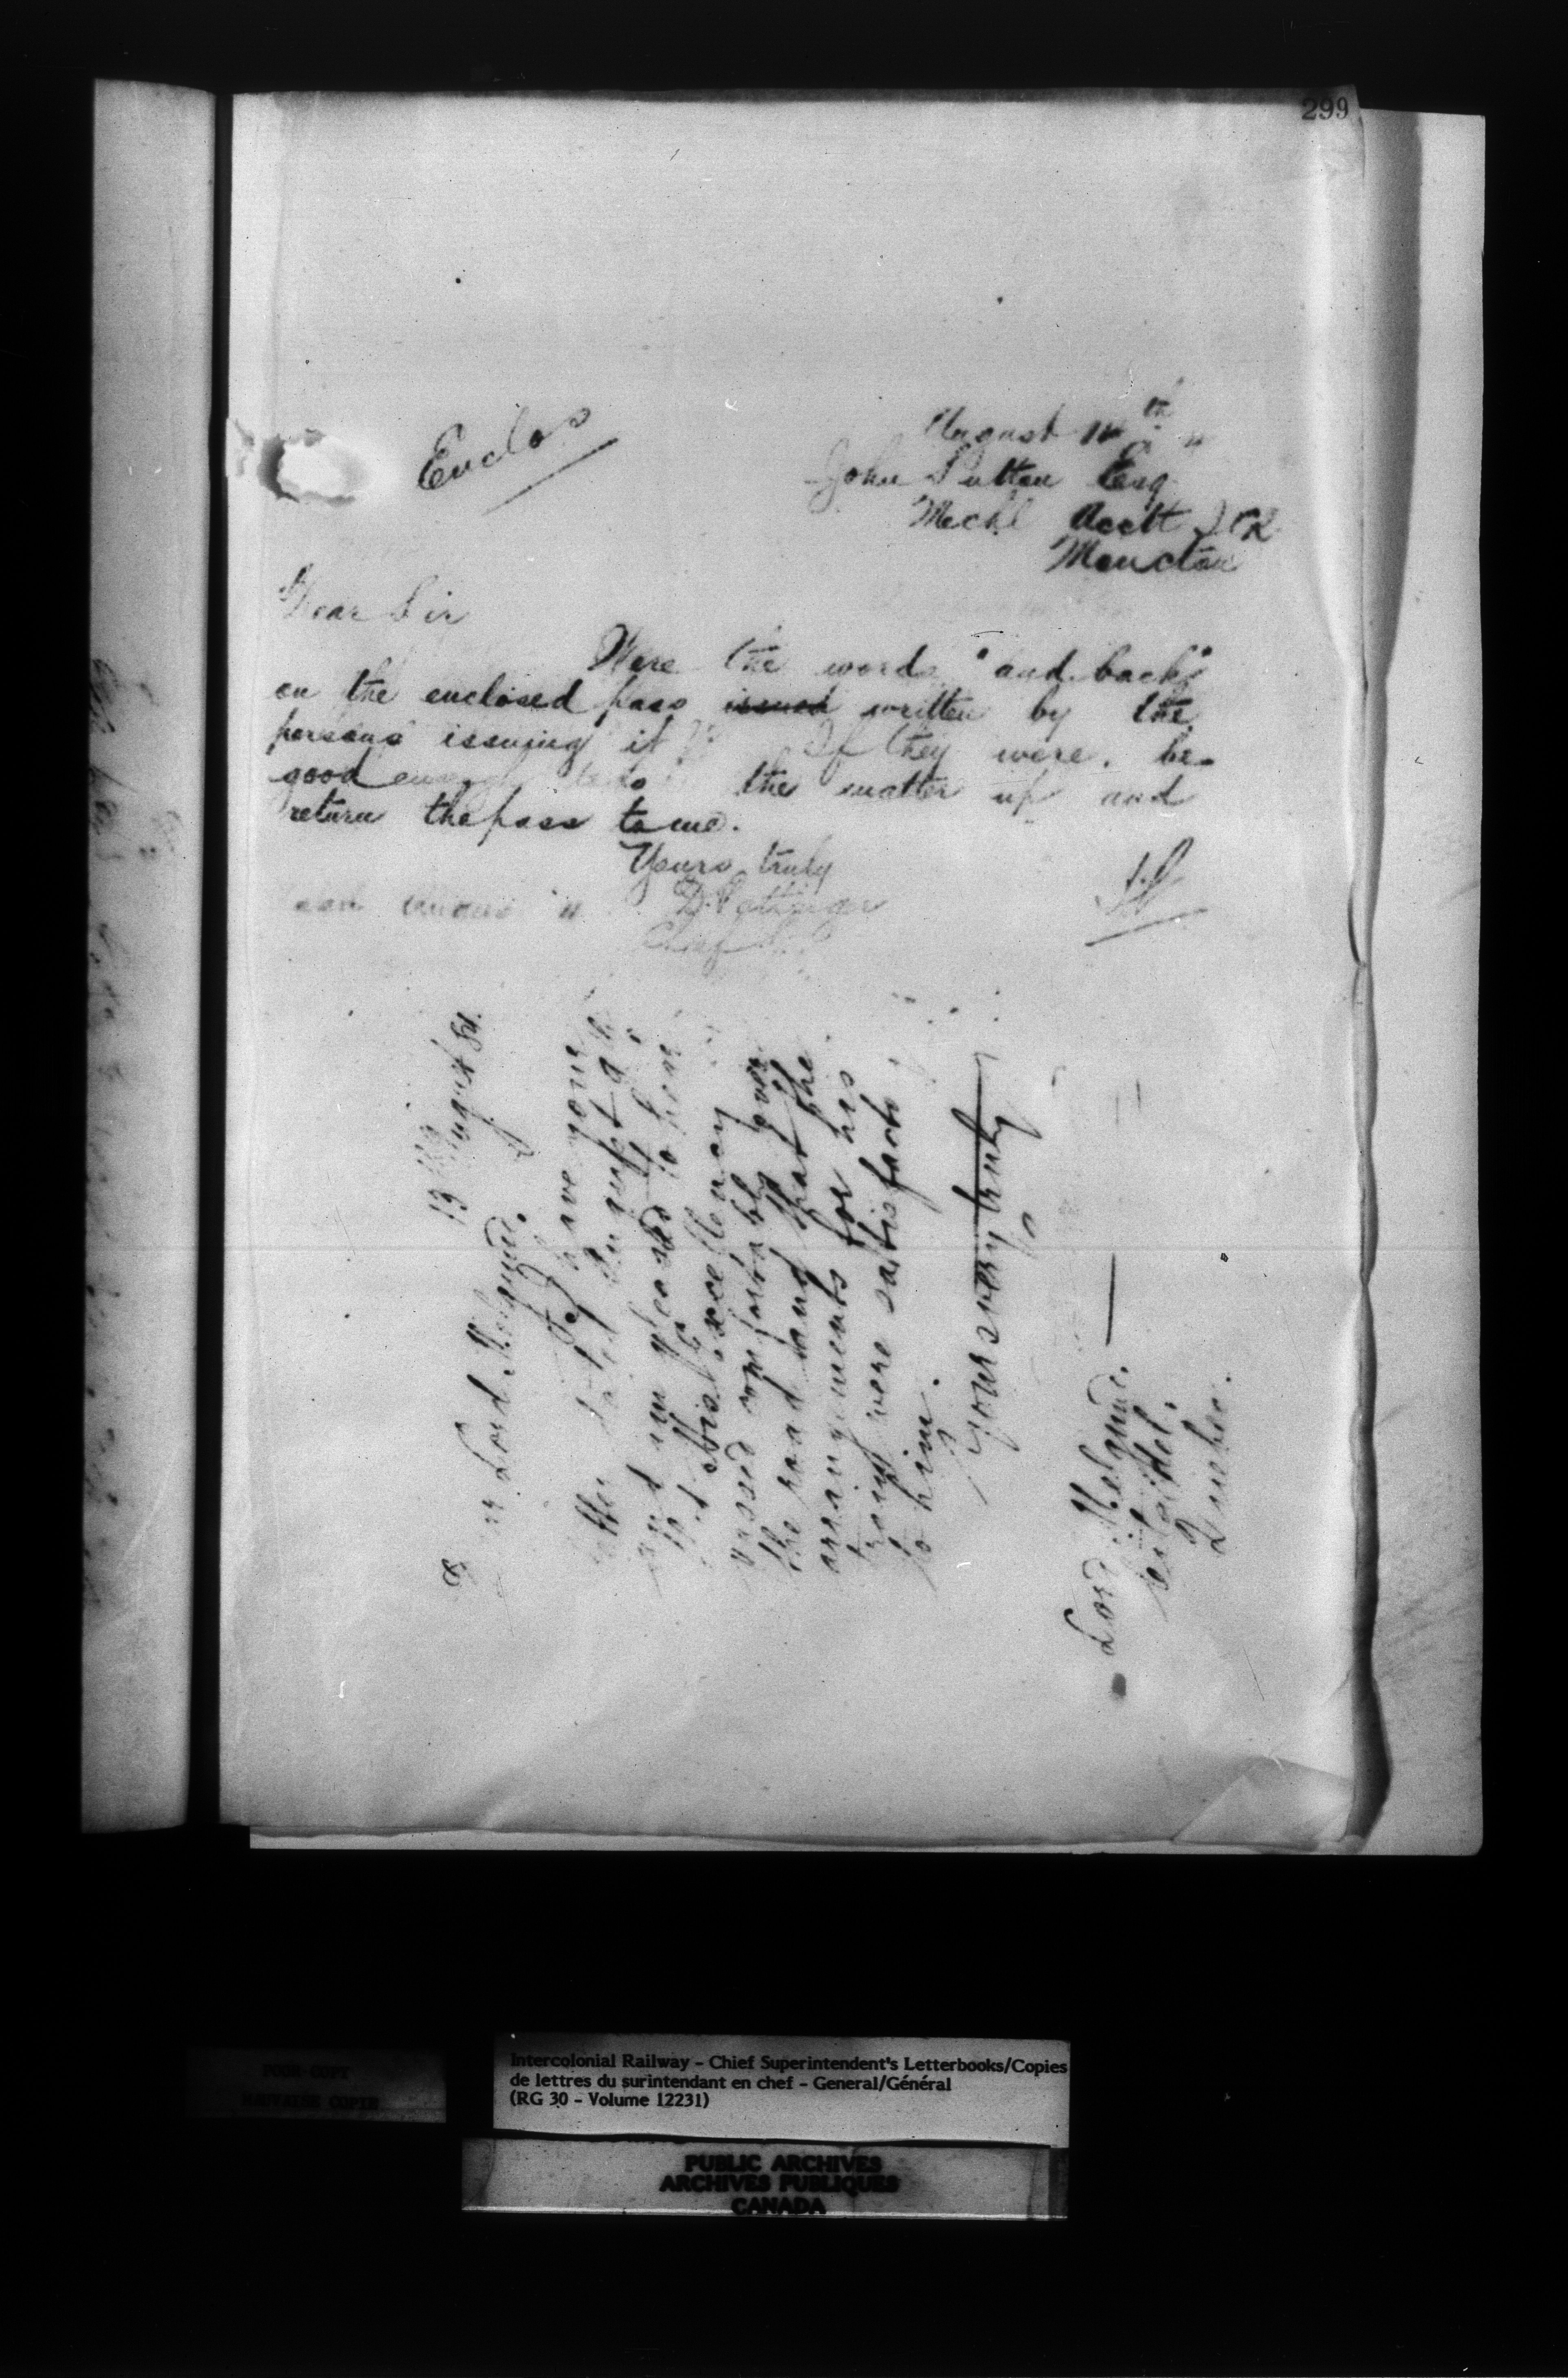 299
Enclos
August 14th
John Sutton Esq
Mechl Acctt ICR
Moncton
Dear Sir
Were the words "and back"
on the enclosed pass issued written by the
persons issuing it If they were, be
good enough the matter up and
return the pass to me.
Yours truly
D. Pottinger
Chief
13 August 84.
Lord Melgund.
I have your
dated August 9
and am pleased to hear
that His Excellency
passed comfortably over
the road and that the
arrangements for his
train were satisfacto
to him.
Yours very truly
Lord Melgund.
Citadel,
Quebec.
POOR COPY
MAUVAISE COPIE
Intercolonial Railway - Chief Superintendent's Letterbooks/Copies
de lettres du surintendant en chef - General/Général
(RG 30 - Volume 12231)
PUBLIC ARCHIVES
ARCHIVES PUBLIQUES
CANADA